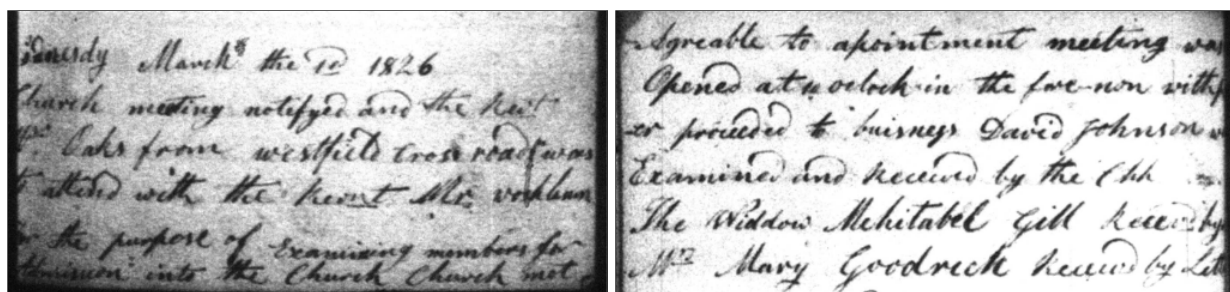 March the 1d 1826
Church meeting notifyed and the Revt
Oaks from westfield Cross roads was
to attend with the Revnt Mr.
the purpose of Examining members for
into the Church Church met
Agreable to apointment meeting was
Opened at oclock in the fore-non with
er proceeded to buisness David Johnson
Examined and Received by the Chh
The Widdow Mehitabel Gill Received by
Mrs Mary Goodrech Received by Let